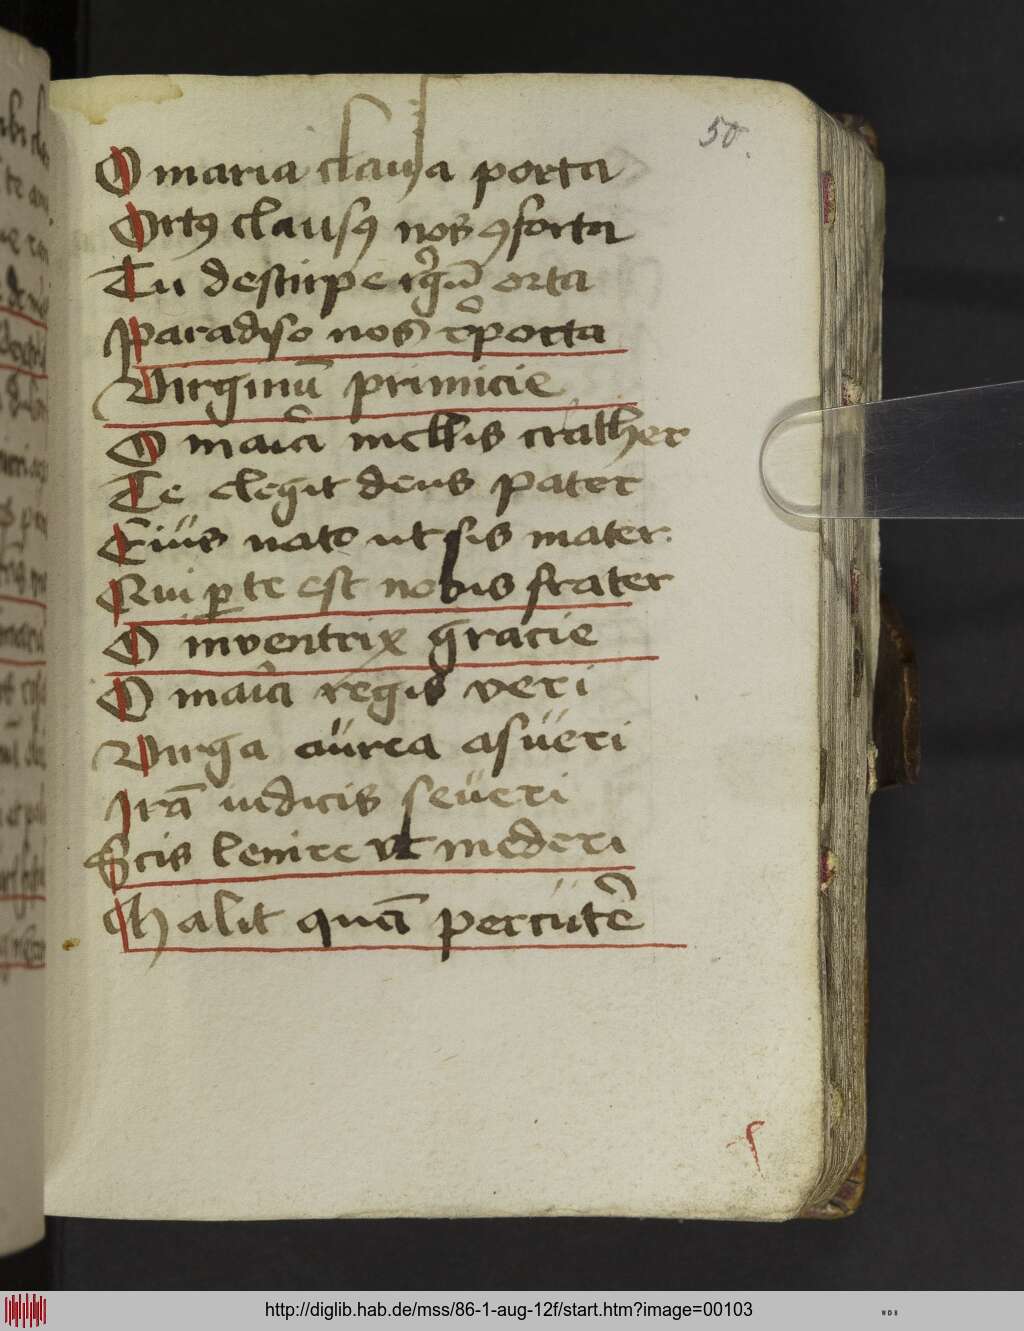 50.
O maria clausa porta
Ortꝰ clausꝰ nos ꝯforta
Tu de stirpe rͥgū orta
Paradiso nos t͛porta
Virginū primicie
O maͥa mellis crather
Te elegit deus pater
Eiüs natᷤ ut sis mater
Qui ꝑ te est nobis frater
O inventrix gracie
O maͥa regis veri
Virga aürea asüeri
Irā iudicis seüeri
Scis lenire vt mederi
halit quā percütē
http://diglib.hab.de/mss/86-1-aug-12f/start.htm?image=00103